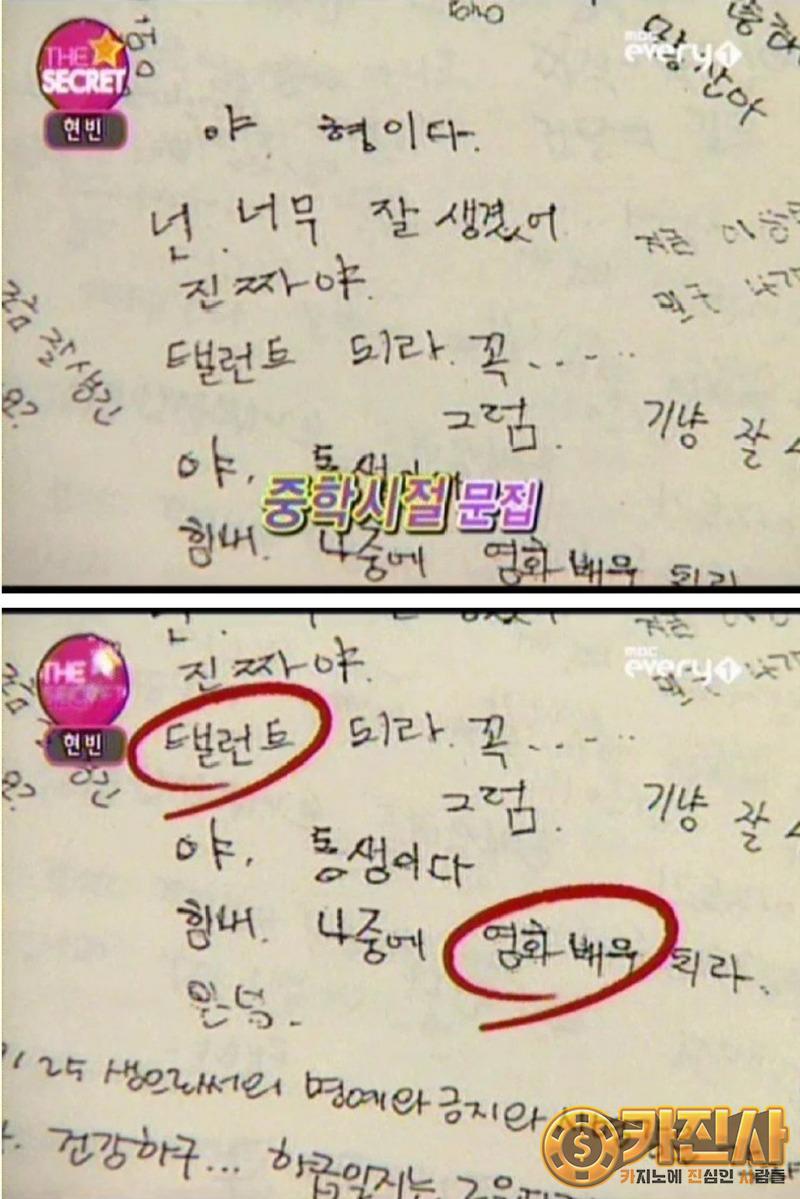 THE
SECRET
현빈
mbc
every1
야. 형이다.
넌 너무 잘 생겼어
진짜야.
탤런트 되라. 꼭.....
그럼.
기냥 잘
야.
중학시절 문집
힘내. 나중에 영화배우 되라
THE
SECRET
현빈
mbc
every1
진짜야.
탤런트 되라. 꼭.....
그럼.
기냥 잘
야. 동생이다
힘내. 나중에 영화배우 되라.
25 생으로써의 명예와 긍지와
건강하구...
카진사
카지노에 진심인 사람들